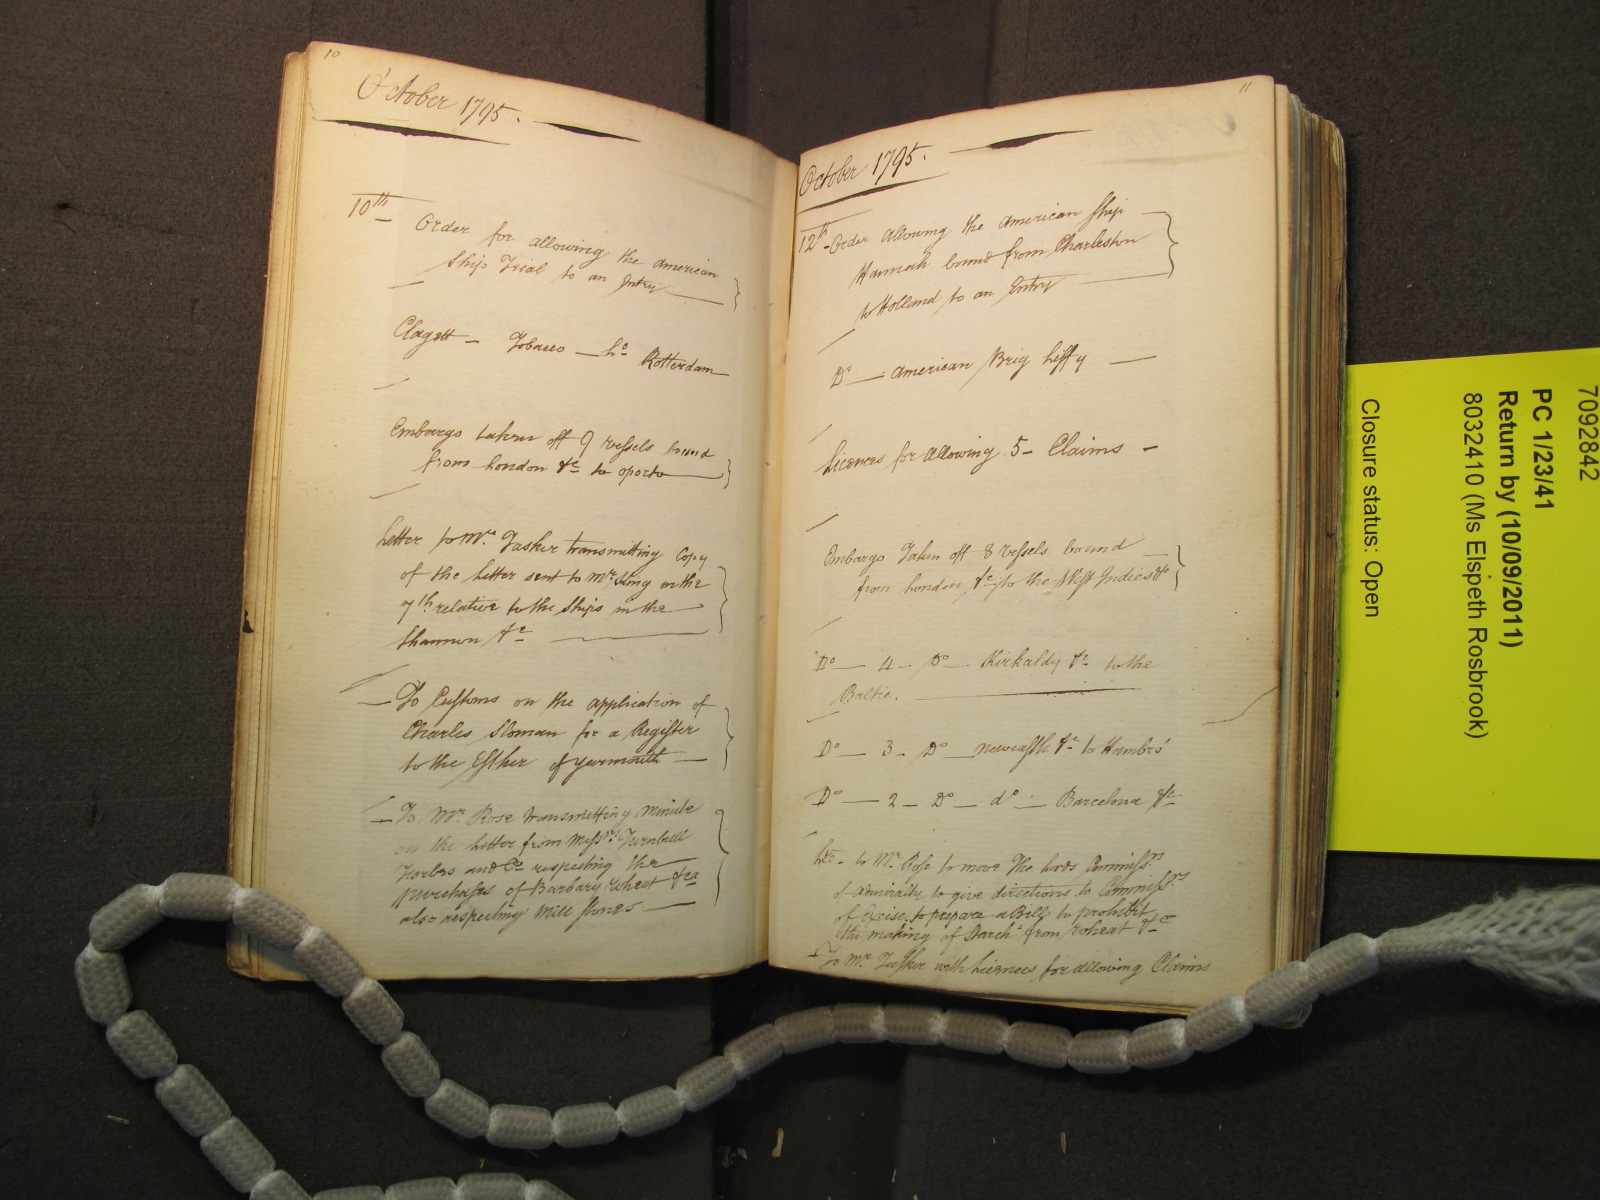 10
October 1795.
10th Order for allowing the American
Ship Trial to an Entry
Clagett — Tobacco — Lo Rotterdam
Embargo taken off 9 Vessels bound
from London &c to Oporto
Letter to Mr. Tasker transmitting Copy
of the Letter sent to Mr. King on the
7th relative to the Ships in the
Shannon &c
To Customs on the application of
Charles Sloman for a Register
to the Esther of Yarmouth
To Mr. Rose transmitting Minute
on the Letter from Messrs. Turnbull
Forbes and Co. respecting the
purchases of Barbary Wheat &ca
also respecting Mill Stones
11
October 1795.
12th Order allowing the American Ship
Hannah bound from Charleston
to Holland to an Entry
Do — American Brig Liffy —
Licences for allowing 5 - Claims -
Embargo Taken off 8 Vessels bound
from London &c to the West Indies &c
Do — 4 - Do — Kirkaldy &c to the
Baltic.
Do — 3 - Do — Newcastle &c to Hambro'
Do — 2 - Do — do — Barcelona &c
to Mr. Rose to move the Lords Commissrs.
of Admiralty to give directions to Commissrs.
of Excise to prepare a Bill to prohibit
the making of Starch from Wheat &c
To Mr. Tasker with Licences for allowing Claims
7092842
PC 1/23/41
Return by (10/09/2011)
8032410 (Ms Elspeth Rosbrook)
Closure status: Open